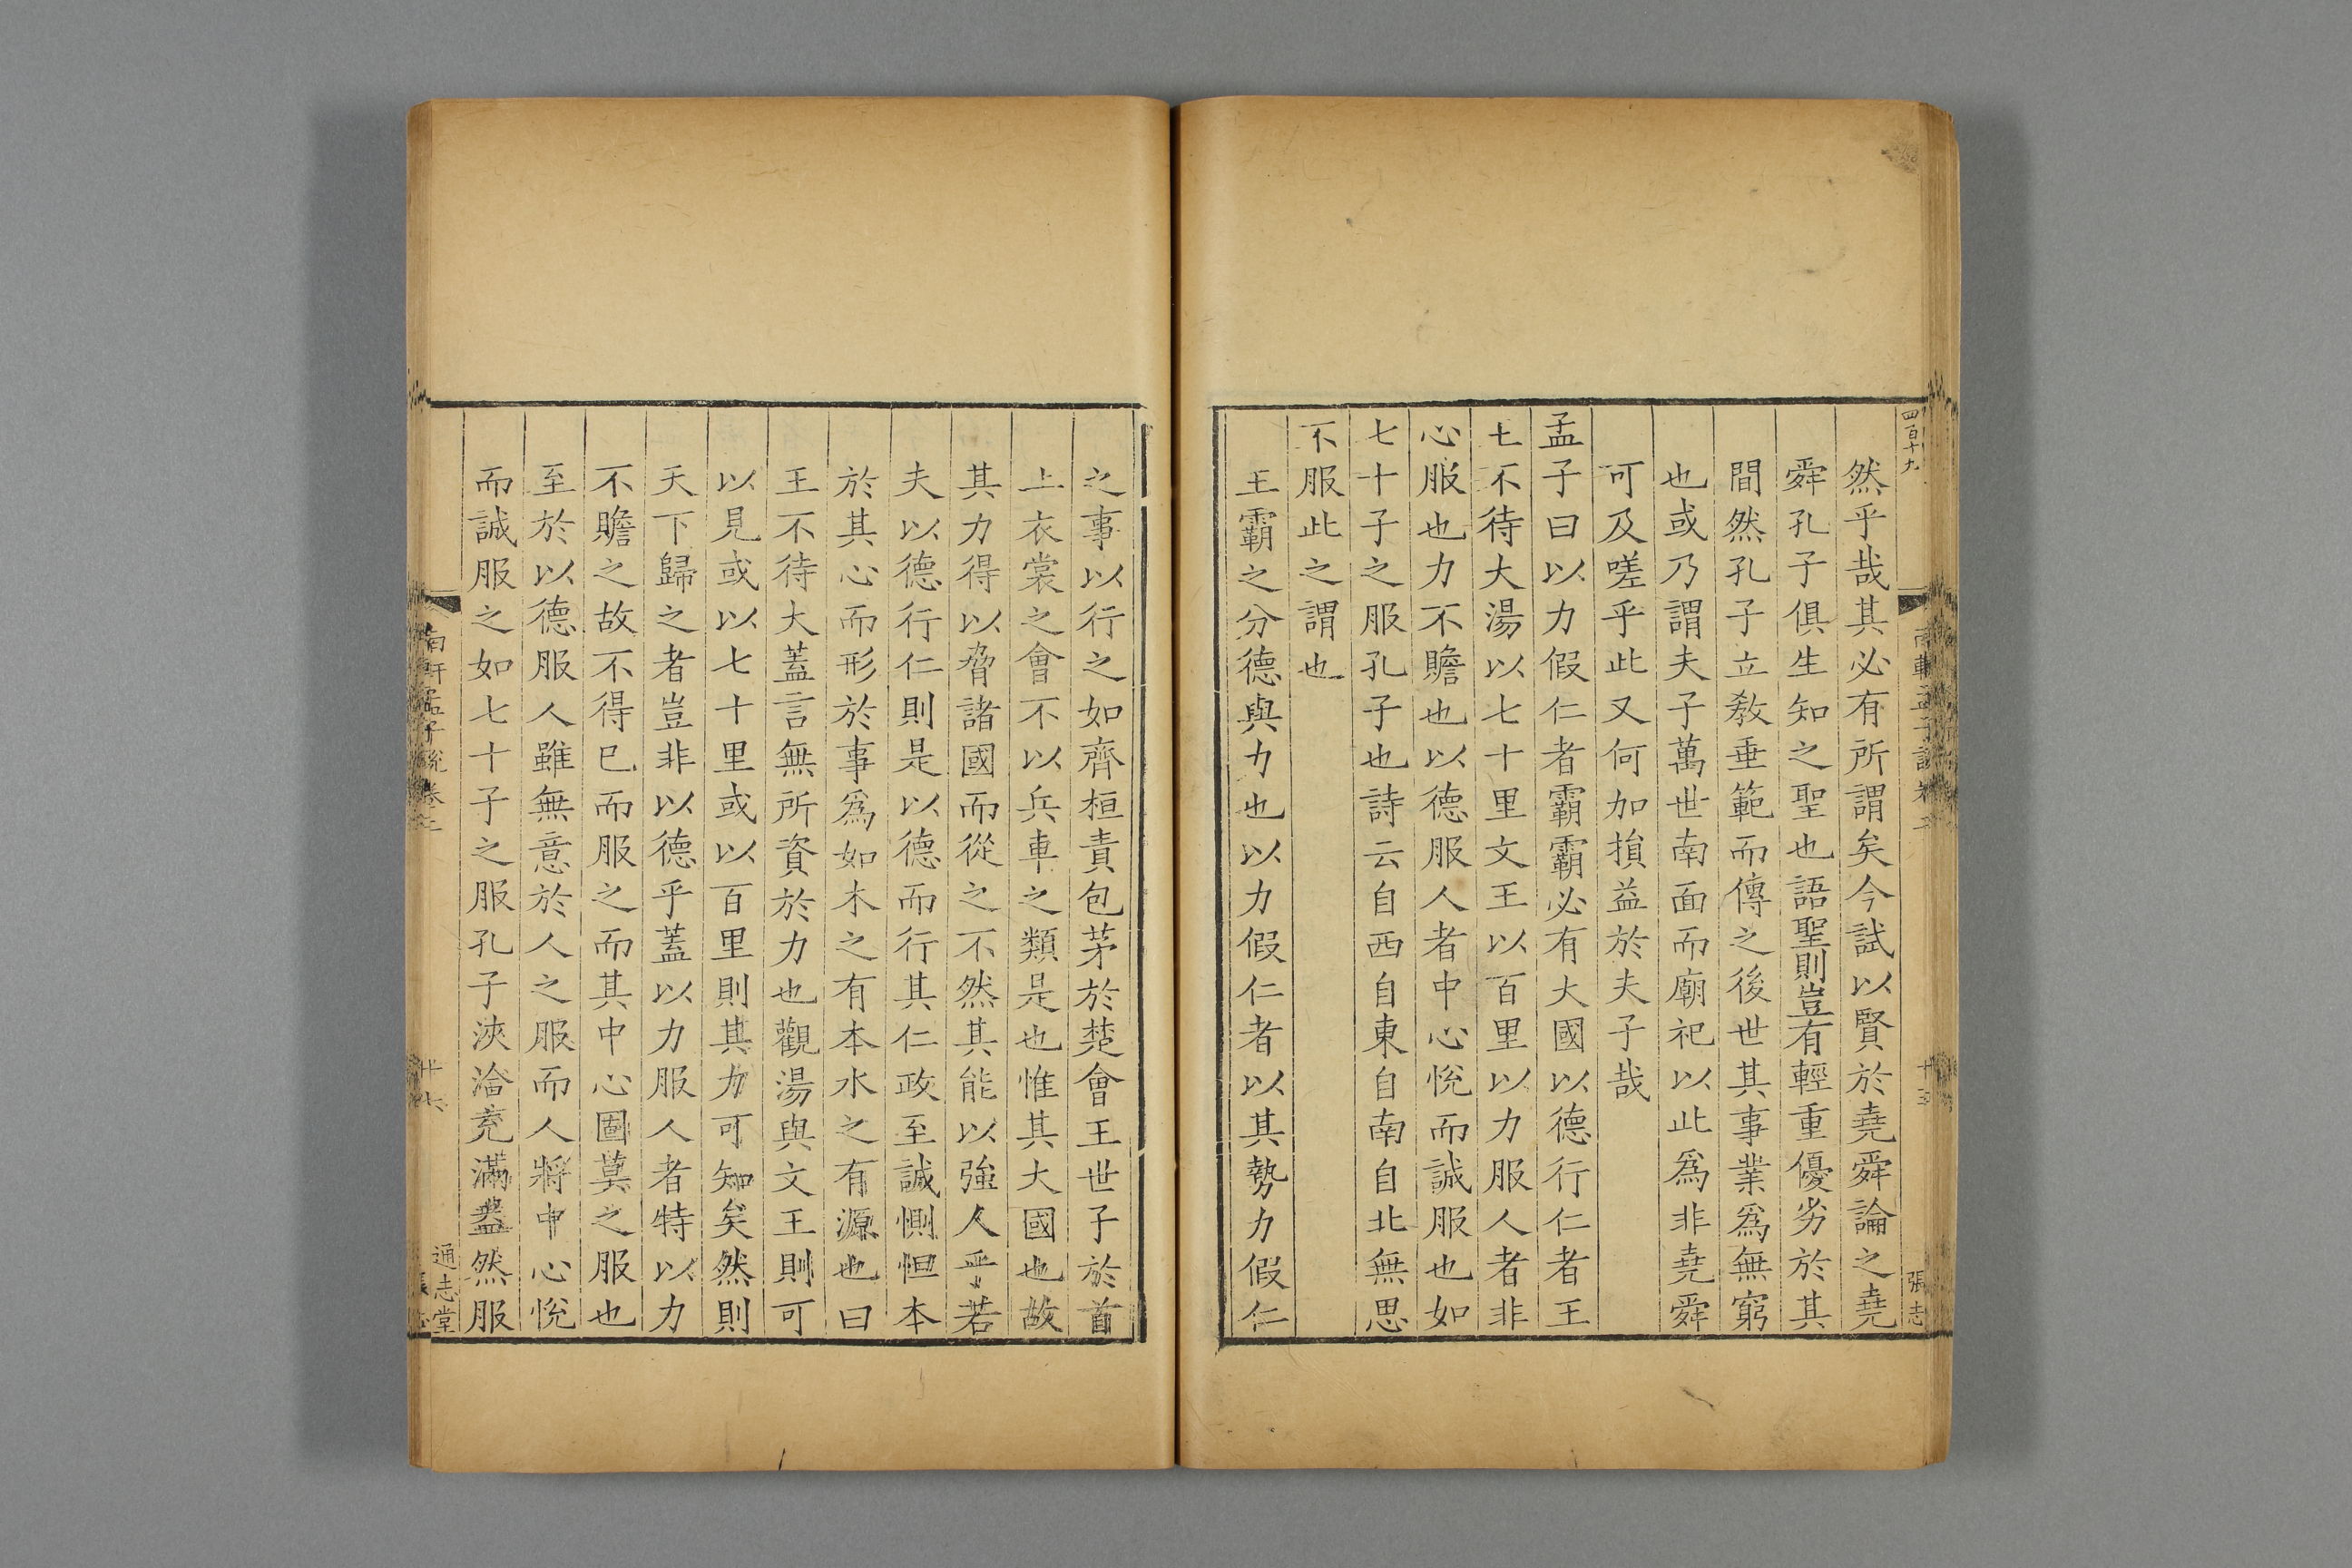 四百十九
張志
然乎哉其必有所謂矣今試以賢於堯舜論之堯
舜孔子俱生知之聖也語聖則豈有輕重優劣於其
間然孔子立教垂範而傳之後世其事業爲無窮
也或乃謂夫子萬世南面而廟祀以此爲非堯舜
可及嗟乎此又何加損益於夫子哉
孟子曰以力假仁者霸霸必有大國以德行仁者王
王不待大湯以七十里文王以百里以力服人者非
心服也力不贍也以德服人者中心悅而誠服也如
七十子之服孔子也詩云自西自東自南自北無思
不服此之謂也
王霸之分德與力也以力假仁者以其勢力假仁
之事以行之如齊桓責包茅於楚會王世子於首
上衣裳之會不以兵車之類是也惟其大國也故
其力得以脅諸國而從之不然其能以強人乎若
夫以德行仁則是以德而行其仁政至誠惻怛本
於其心而形於事爲如木之有本水之有源也曰
王不待大蓋言無所資於力也觀湯與文王則可
以見或以七十里或以百里則其力可知矣然則
天下歸之者豈非以德乎蓋以力服人者特以力
不贍之故不得已而服之而其中心固莫之服也
至於以德服人雖無意於人之服而人將中心悅
而誠服之如七十子之服孔子浹洽充滿盎然服
南軒孟子說卷二
通志堂